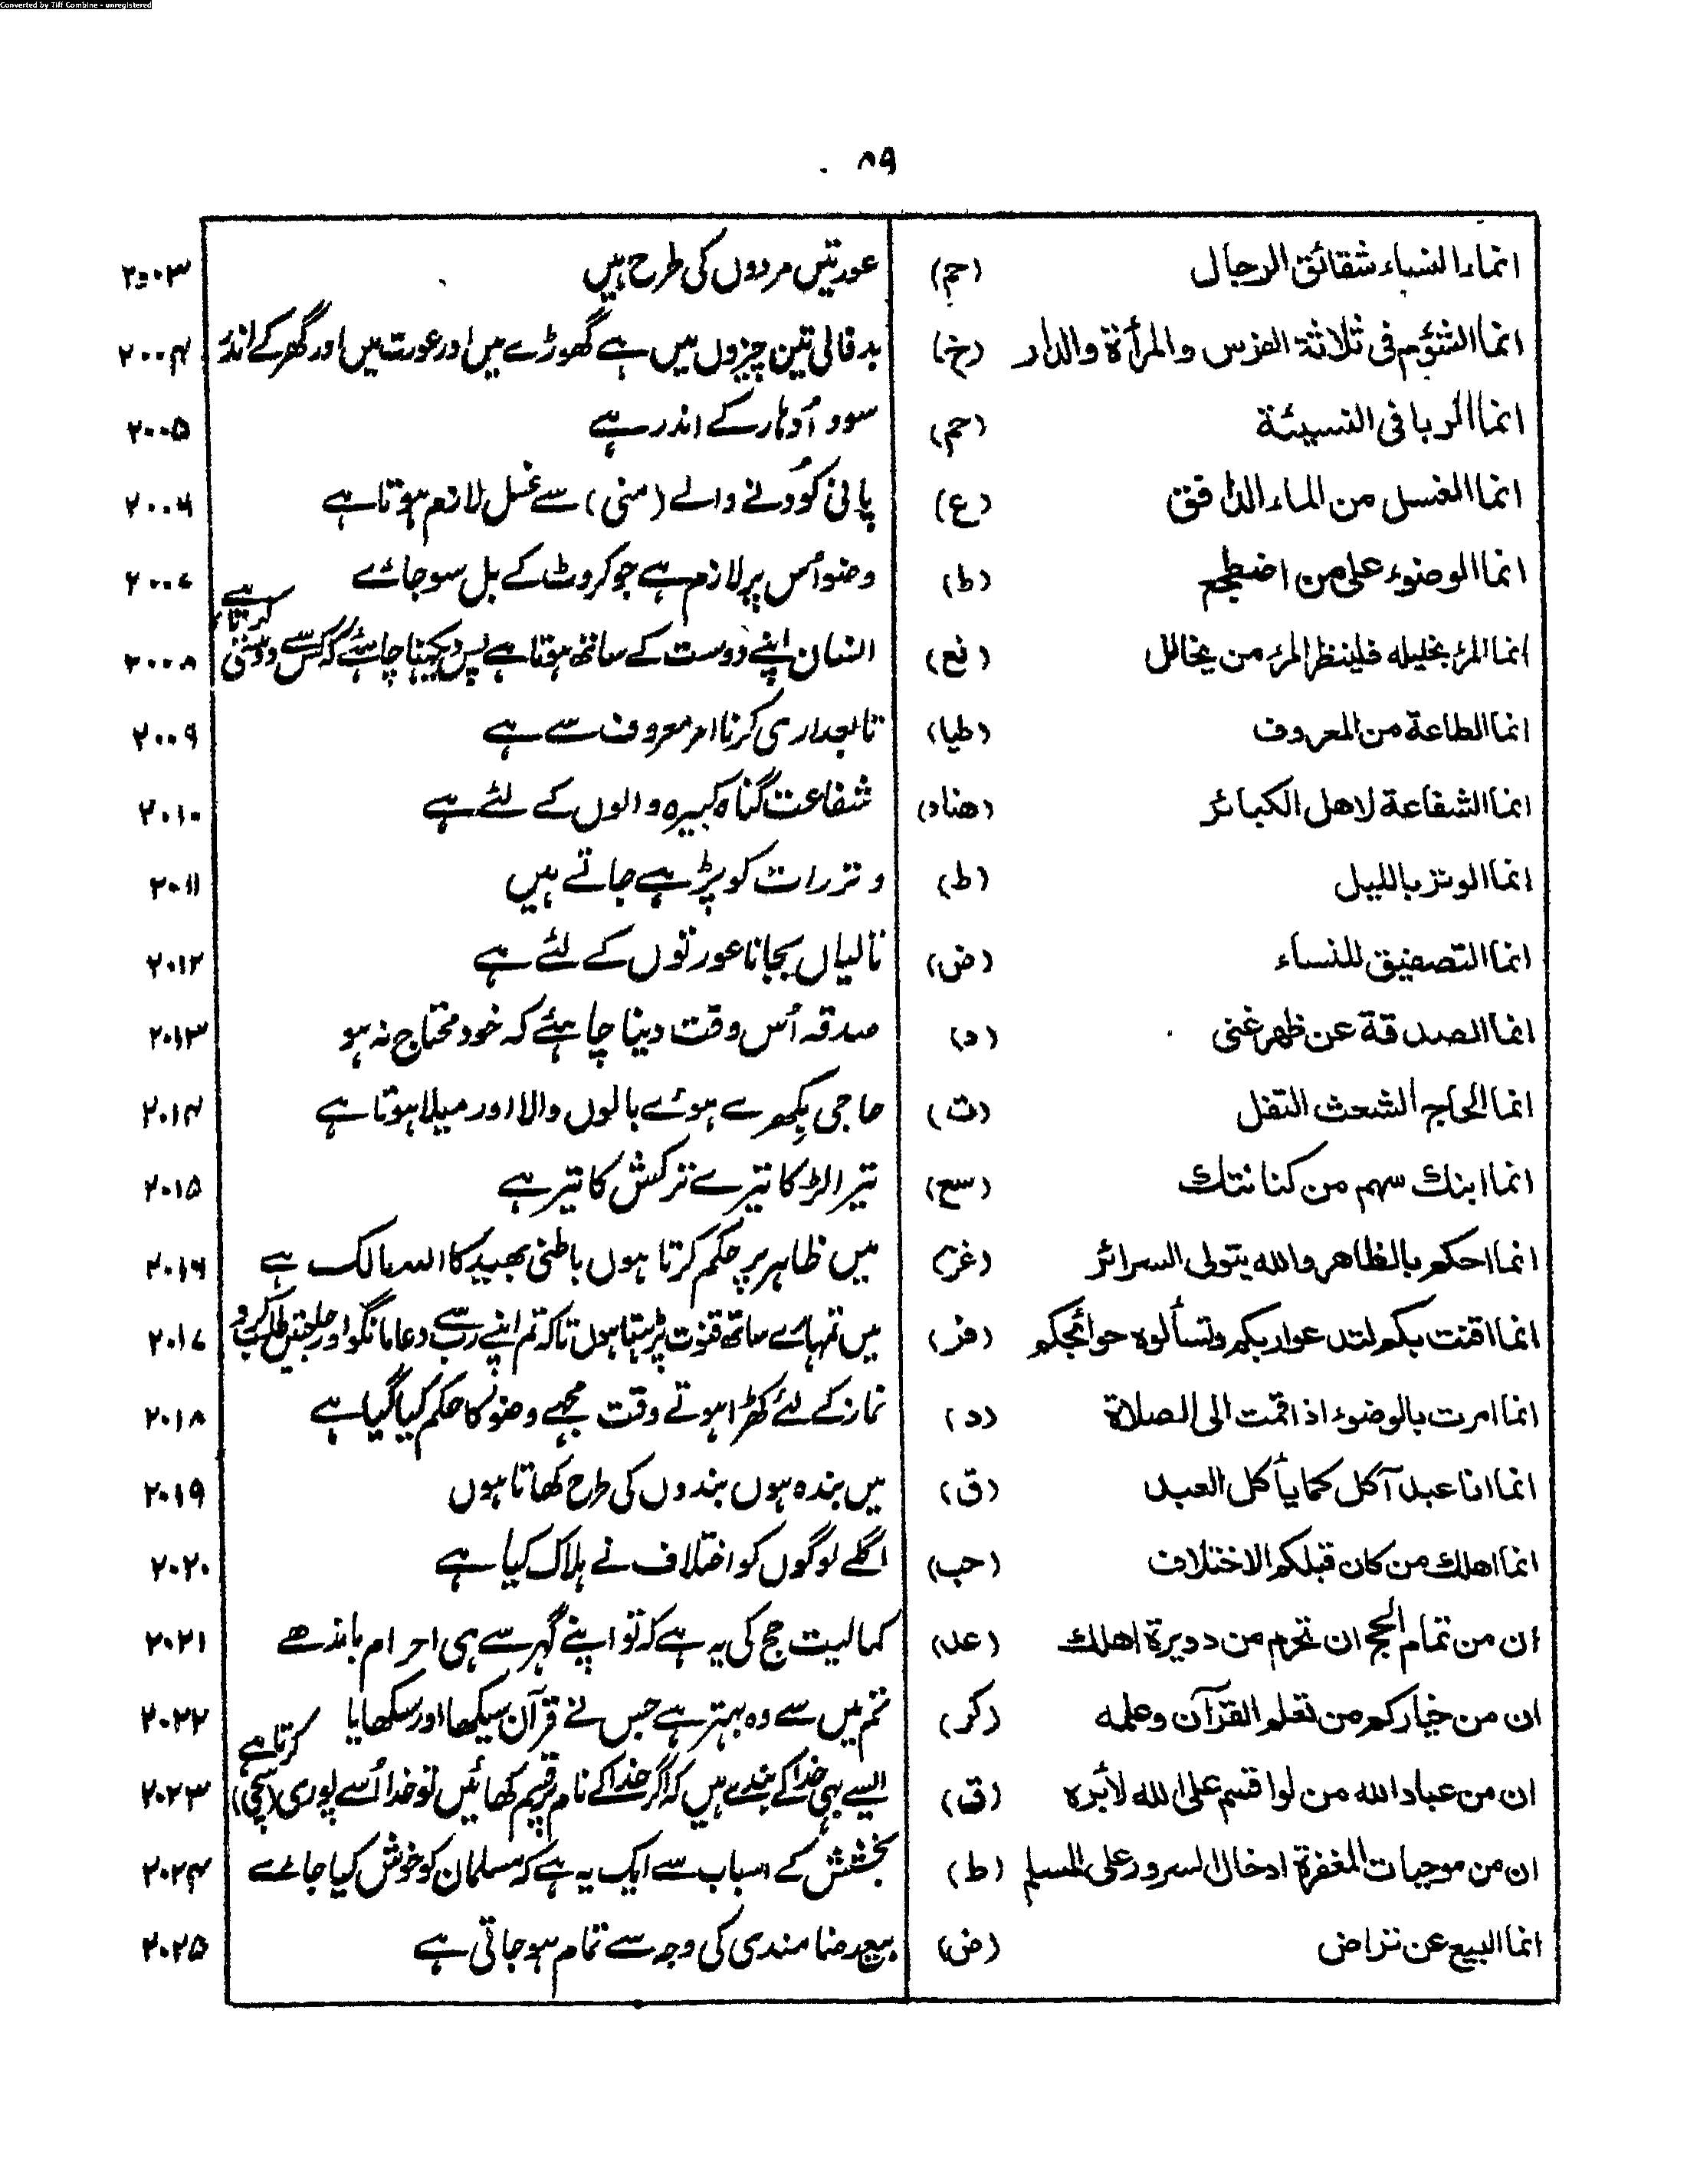 Converted by Tiff Combine - unregistered
۸۹
انما النساء شقائق الرجال (حم) عورتیں مردوں کی طرح ہیں ۲۰۰۳
انما الشؤم فی ثلاثة الفرس والمرأة والدار (خ) بدفالی تین چیزوں میں ہے گھوڑے میں اور عورت میں اور گھر کے اندر ۲۰۰۴
انما الربا فی النسیئة (حم) سود اُدہار کے اندر ہے ۲۰۰۵
انما الغسل من الماء الدافق (ع) پانی کودنے والے (منی) سے غسل لازم ہوتا ہے ۲۰۰۶
انما الوضوء علی من اضطجع (ط) وضو اُس پر لازم ہے جو کروٹ کے بل سو جاے ۲۰۰۷
انما المرٔ بخلیله فلینظر المرٔ من یخالل (نع) انسان اپنے دوست کے ساتھ ہوتا ہے پس دیکہنا چاہئے کہ کس سے دوستی کرتا ہے ۲۰۰۸
انما الطاعة من المعروف (طیا) تابعداری کرنا امر معروف سے ہے ۲۰۰۹
انما الشفاعة لاهل الکبائر (هناد) شفاعت گناہ کبیرہ والوں کے لئے ہے ۲۰۱۰
انما الوتر باللیل (ط) وتر رات کو پڑہے جاتے ہیں ۲۰۱۱
انما التصفیق للنساء (ض) تالیاں بجانا عورتوں کے لئے ہے ۲۰۱۲
انما الصدقة عن ظهر غنی (د) صدقہ اُس وقت دینا چاہئے کہ خود محتاج نہ ہو ۲۰۱۳
انما الحاج الشعث التفل (ت) حاجی بکھرے ہوے بالوں والا اور میلا ہوتا ہے ۲۰۱۴
انما ابنك سهم من کنانتك (سع) تیرا لڑکا تیرے ترکش کا تیر ہے ۲۰۱۵
انما احکم بالظاهر والله یتولی السرائر (غز) میں ظاہر پر حکم کرتا ہوں باطنی بھید کا اللہ مالک ہے ۲۰۱۶
انما اقنت بکم لتدعوا ربکم وتسألوه حوائجکم (فر) میں تمہارے ساتھ قنوت پڑہتا ہوں تاکہ تم اپنے رب سے دعا مانگو اور حاجتیں طلب کرو ۲۰۱۷
انما امرت بالوضوء اذا قمت الی الصلاة (د) نماز کے لئے کھڑا ہوتے وقت مجہے وضو کا حکم کیا گیا ہے ۲۰۱۸
انما انا عبد آکل کما یأکل العبد (ق) میں بندہ ہوں بندوں کی طرح کھاتا ہوں ۲۰۱۹
انما اهلك من کان قبلکم الاختلاف (حب) اگلے لوگوں کو اختلاف نے ہلاک کیا ہے ۲۰۲۰
ان من تمام الحج ان تحرم من دویرة اهلك (عد) کمالیت حج کی یہ ہے کہ تو اپنے گہر سے ہی احرام باندھے ۲۰۲۱
ان من خیارکم من تعلم القرآن وعلمه (کر) تم میں سے وہ بہتر ہے جس نے قرآن سیکھا اور سکھایا ۲۰۲۲
ان من عباد الله من لو اقسم علی الله لأبره (ق) ایسے بہی خدا کے بندے ہیں کہ اگر خدا کے نام پر قسم کھائیں تو خدا اُسے پوری (سچی) کرتا ہے ۲۰۲۳
ان من موجبات المغفرة ادخال السرور علی المسلم (ط) بخشش کے اسباب سے ایک یہ ہے کہ مسلمان کو خوش کیا جاے ۲۰۲۴
انما البیع عن تراض (ض) بیع رضامندی کی وجہ سے تمام ہو جاتی ہے ۲۰۲۵